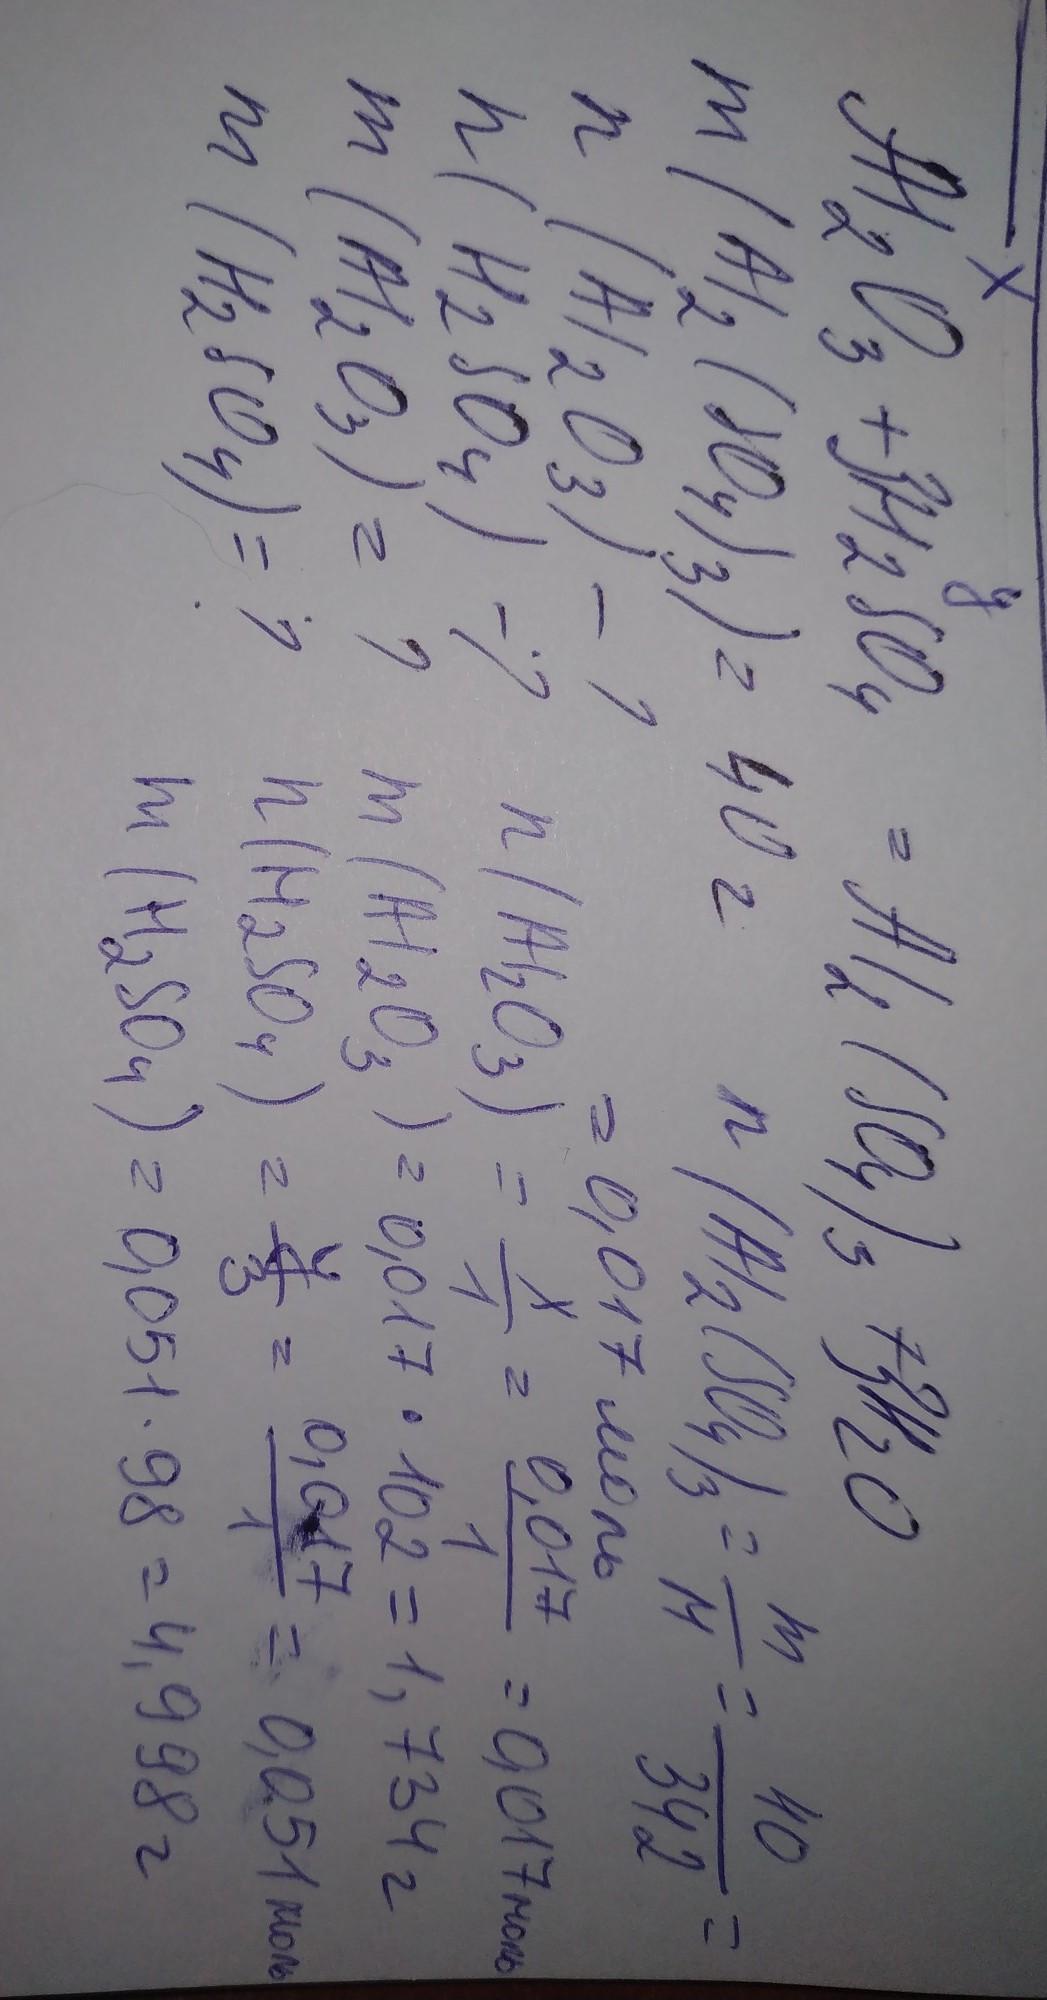 x y
Al2O3 + 3H2SO4 = Al2(SO4)3 + 3H2O
m(Al2(SO4)3) = 40 г n(Al2(SO4)3) = m/M = 10/342 =
= 0,017 моль
n(Al2O3) - ?
n(Al2O3) = x/1 = 0,017/1 = 0,017 моль
n(H2SO4) - ?
m(Al2O3) = ? m(Al2O3) = 0,017 · 102 = 1,734 г
n(H2SO4) = y/3 = 0,017/1 = 0,051 моль
m(H2SO4) = ? m(H2SO4) = 0,051 · 98 = 4,998 г